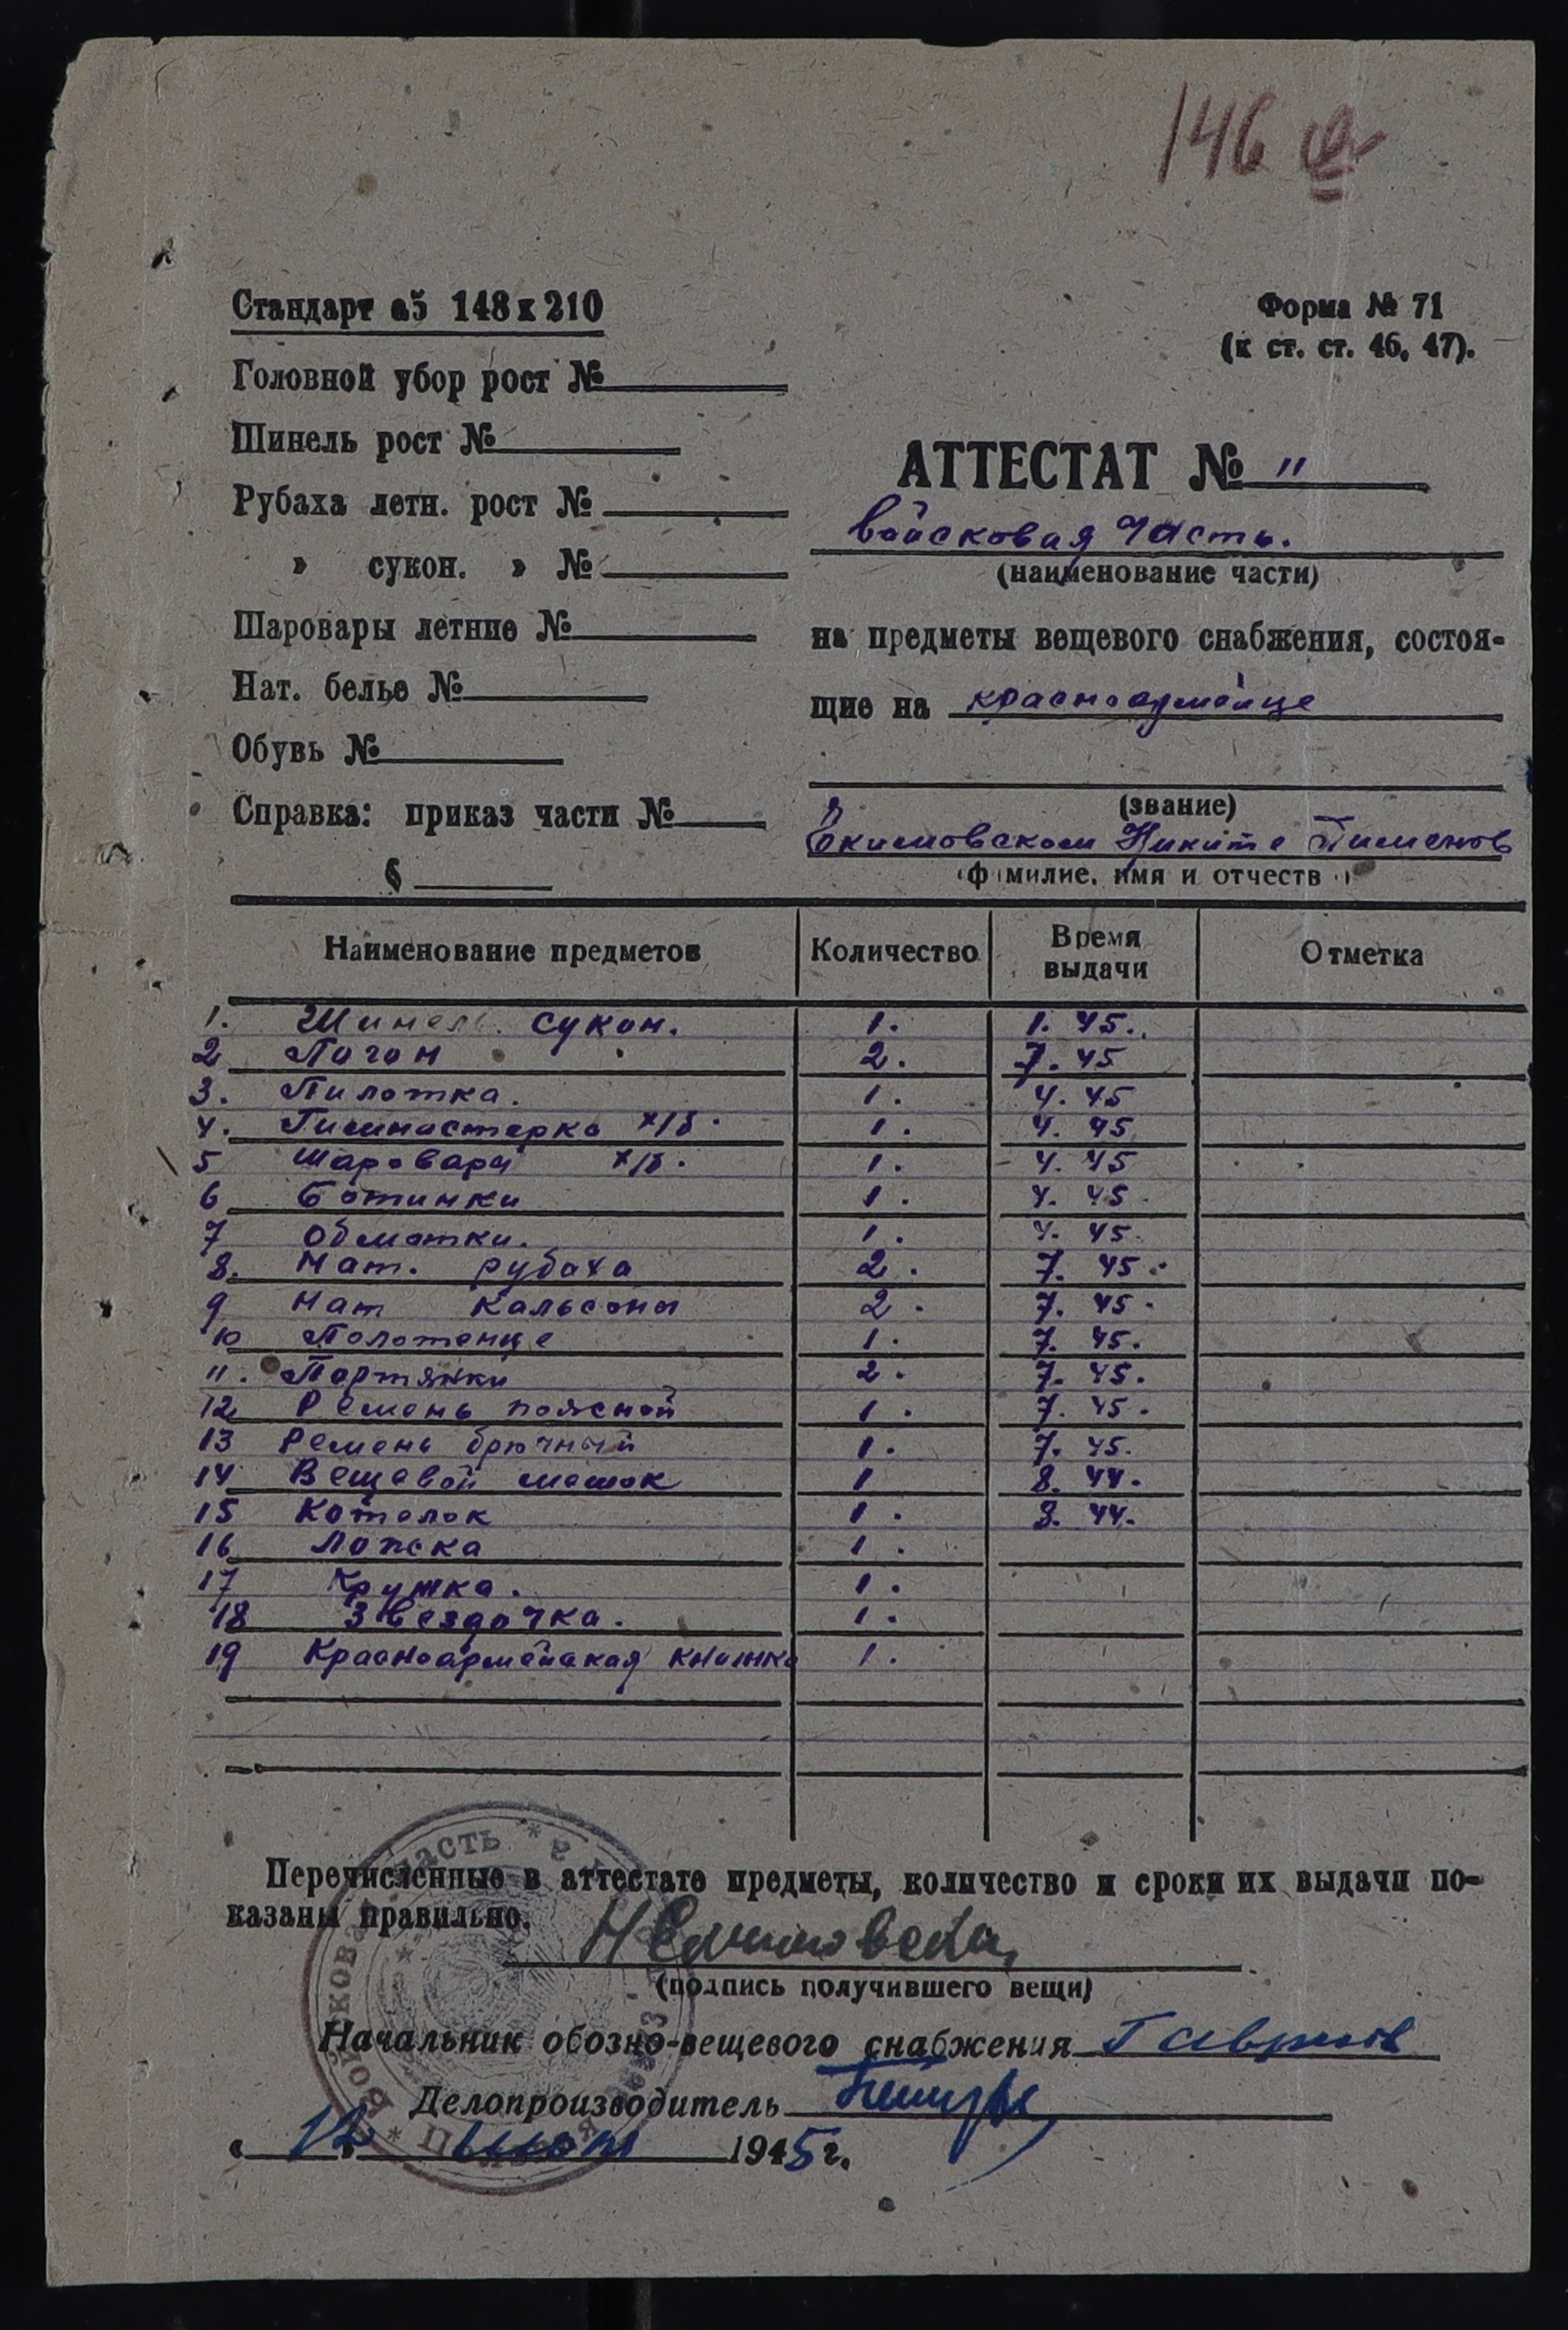 146
Стандарт а5 148х210
Форма № 71
(к ст. ст. 46, 47).
Головной убор рост №
Шинель рост №
Рубаха летн. рост №
» сукон. » №
Шаровары летние №
Нат. белье №
Обувь №
Справка: приказ части №
§
АТТЕСТАТ № 11
войсковая часть.
(наименование части)
на предметы вещевого снабжения, состоя-
щие на красноармейце
(звание)
Екимовском Никите Пименов
(фамилие, имя и отчество)
Наименование предметов Количество Время выдачи Отметка
1. Шинель сукон. 1. 1. 45.
2 Погон 2. 7. 45
3. Пилотка. 1. 4. 45
4. Гимнастерка х/б. 1. 4. 45
5 Шаровары х/б. 1. 4. 45
6 Ботинки 1. 4. 45
7 Обмотки. 1. 4. 45.
8. Нат. рубаха 2. 7. 45.
9 Нат Кальсоны 2. 7. 45.
10 Полотенце 1. 7. 45.
11. Портянки 2. 7. 45.
12 Ремень поясной 1. 7. 45.
13 Ремень брючный 1. 7. 45.
14 Вещевой мешок 1 8. 44.
15 Котелок 1. 8. 44.
16 Ложка 1.
17 Кружка. 1.
18 Звездочка. 1.
19 Красноармейская книжка 1.
Перечисленные в аттестате предметы, количество и сроки их выдачи по-
казаны правильно.
(подпись получившего вещи)
Начальник обозно-вещевого снабжения Гаврилов
Делопроизводитель
« 12 » 1945 г.
Войсковая часть